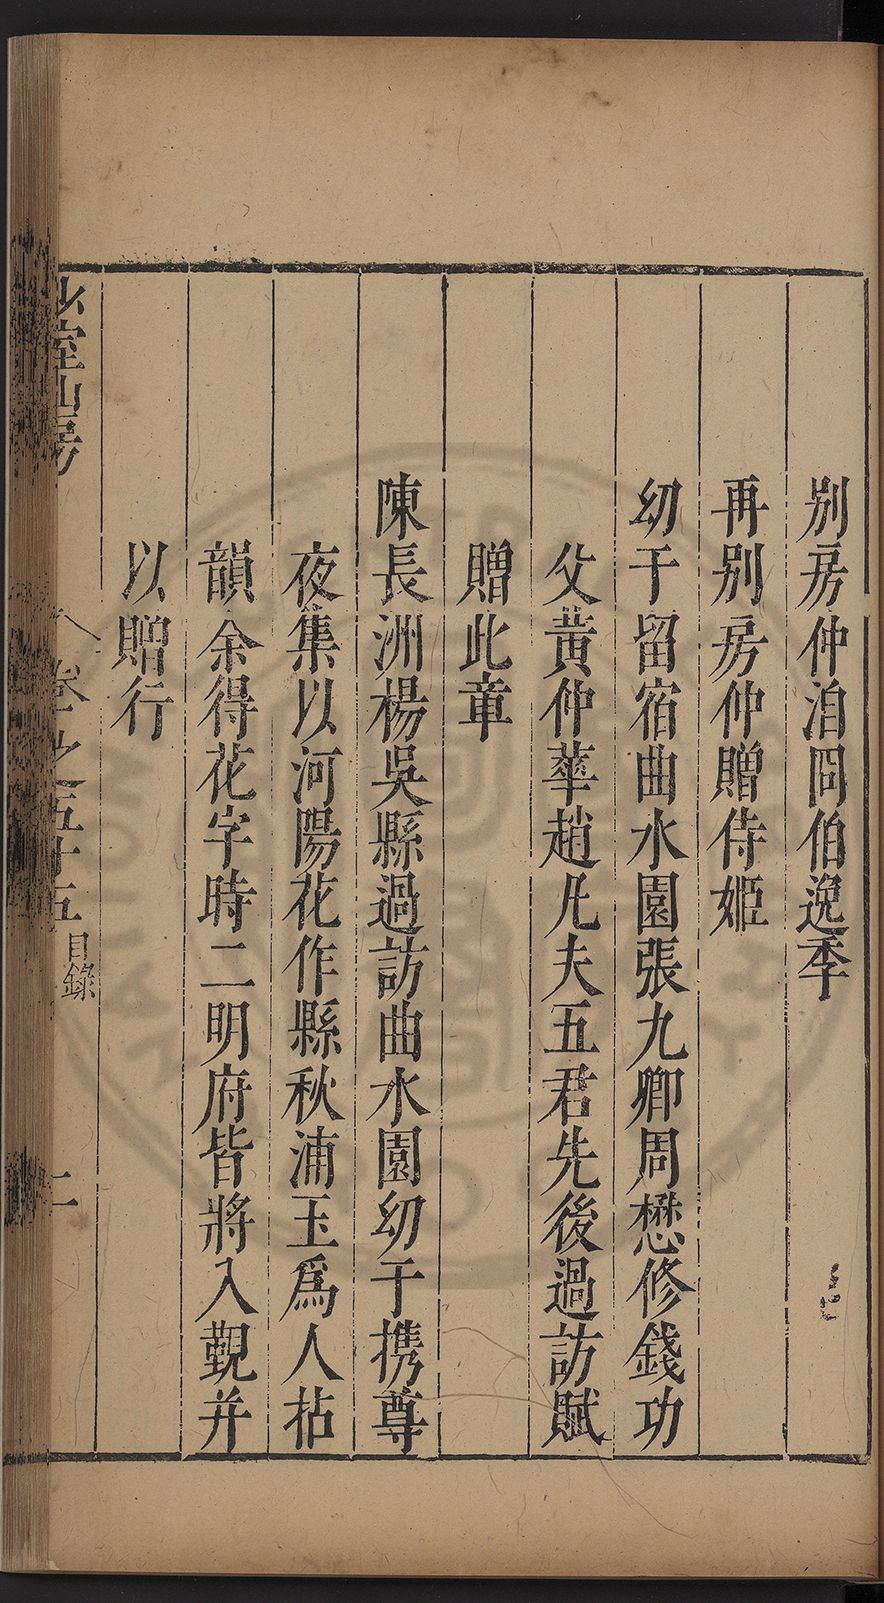 別房仲洎冏伯逸季
再別房仲贈侍姬
幼于留宿曲水園張九卿周懋修錢功
父黃仲華趙凡夫五君先後過訪賦
贈此章
陳長洲楊吳縣過訪曲水園幼于携尊
夜集以河陽花作縣秋浦玉爲人拈
韻余得花字時二明府皆將入覲并
以贈行
少室山房 卷之五十五 目錄 二